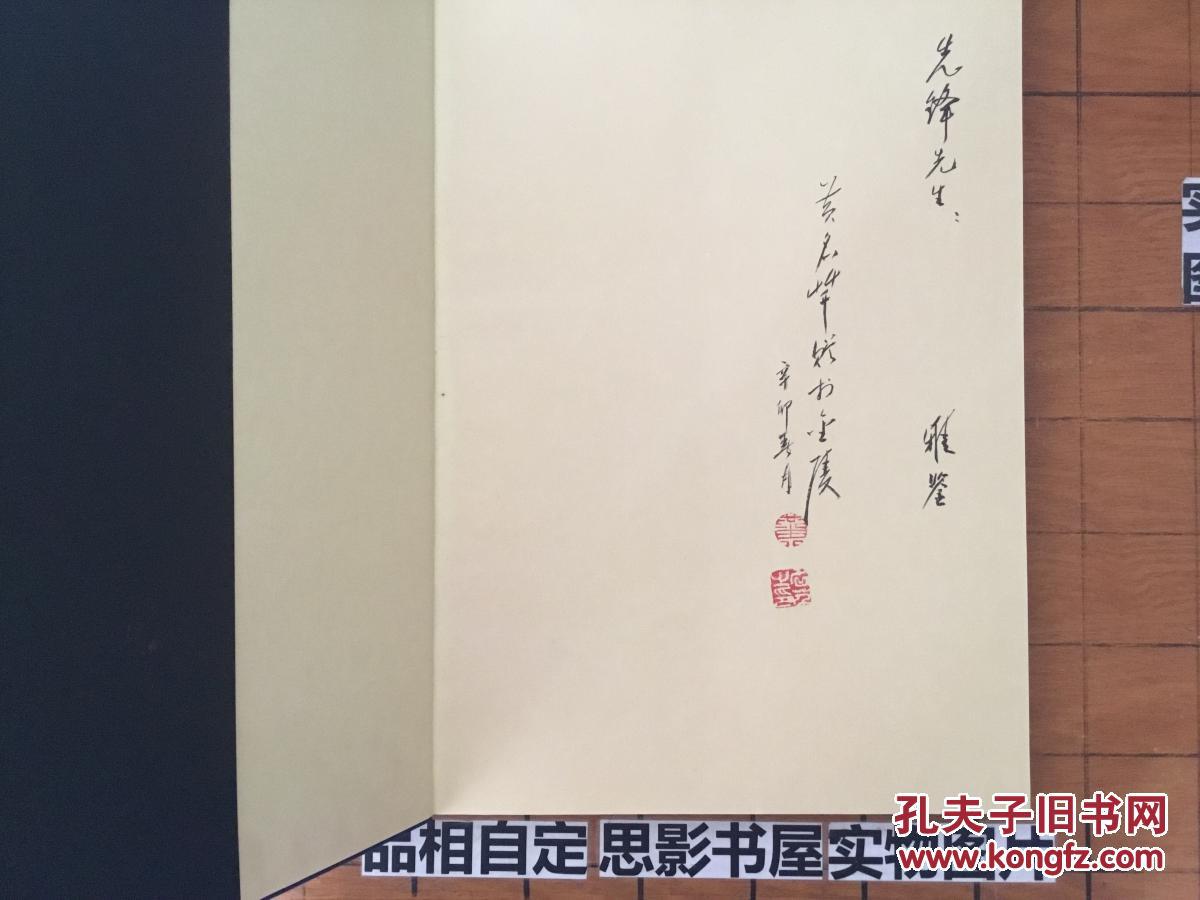 先锋先生：
雅鉴
黄名芊赠于金陵
辛卯春月
品相自定 思影书屋 实物图片
孔夫子旧书网
www.kongfz.com